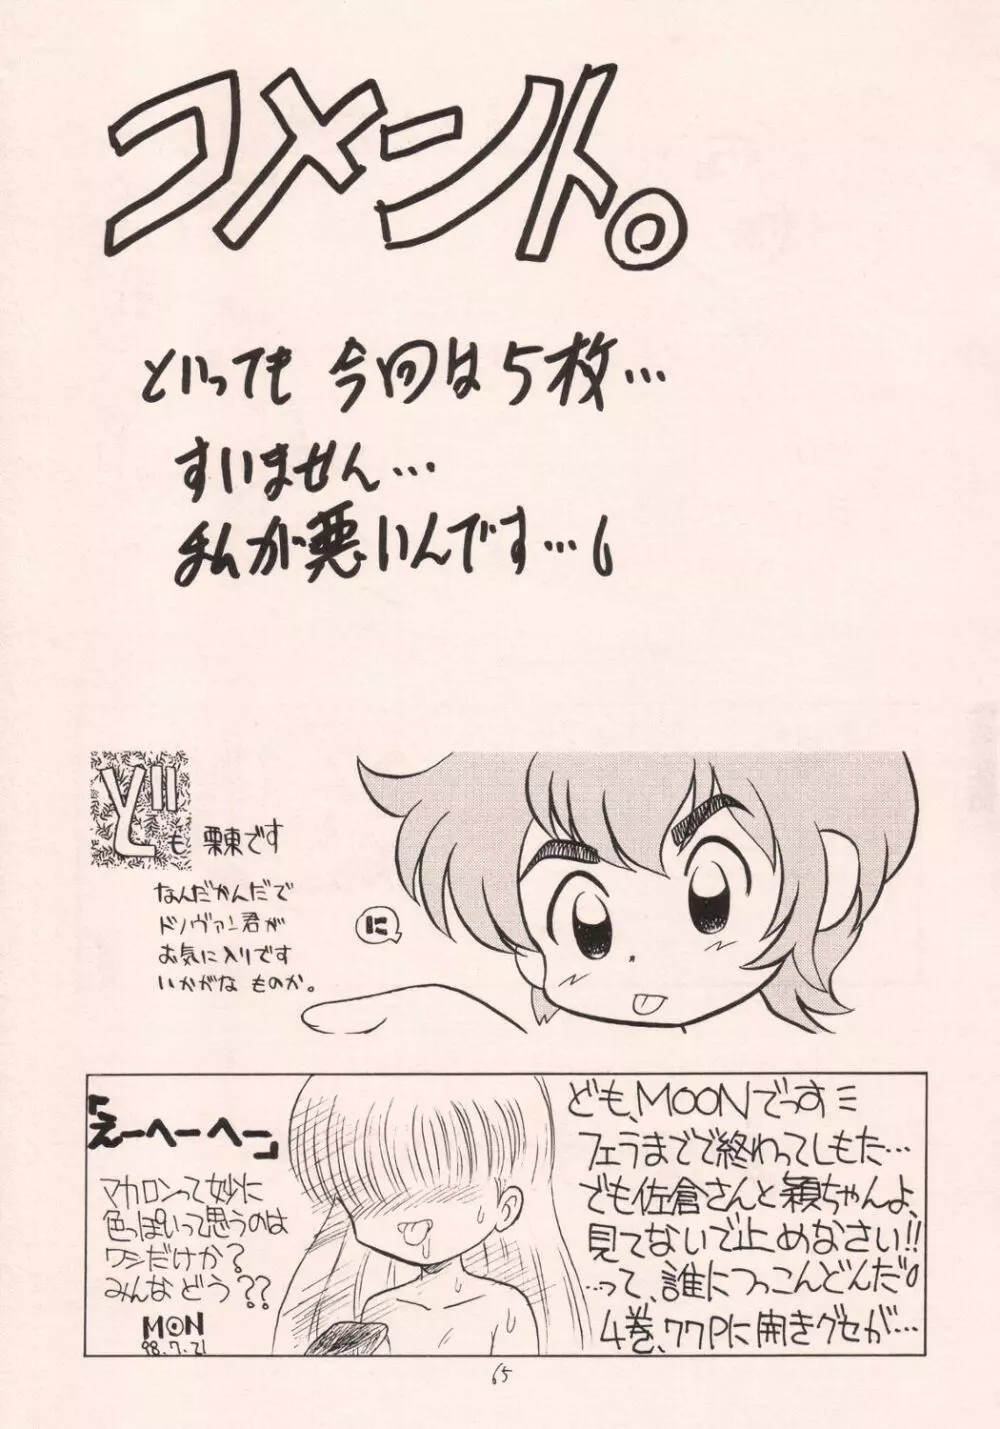 コメント。
といっても 今回は5枚…
すいません…
私が悪いんです…
ども 栗東です
なんだかんだで
ドノヴァン君が
お気に入りです
いかがな ものか。
に
「えーへーへー」
マカロンって妙に
色っぽいって思うのは
ワシだけか?
みんな どう??
MOON
98.7.21
ども、MOONでっす
フェラまでで終わってしもた…
でも佐倉さんと穎ちゃんよ、
見てないで止めなさい!!
…って、誰につっこんどんだ。
4巻、77Pに開きグセが…
65